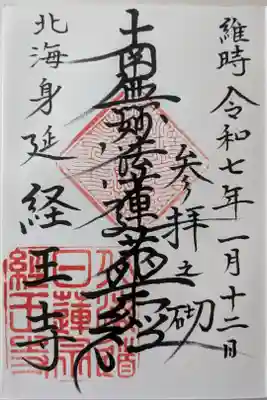 維時 令和七年一月十二日
参拝之砌
南無妙法蓮華経
北海身延 経王寺
日蓮宗
経王寺